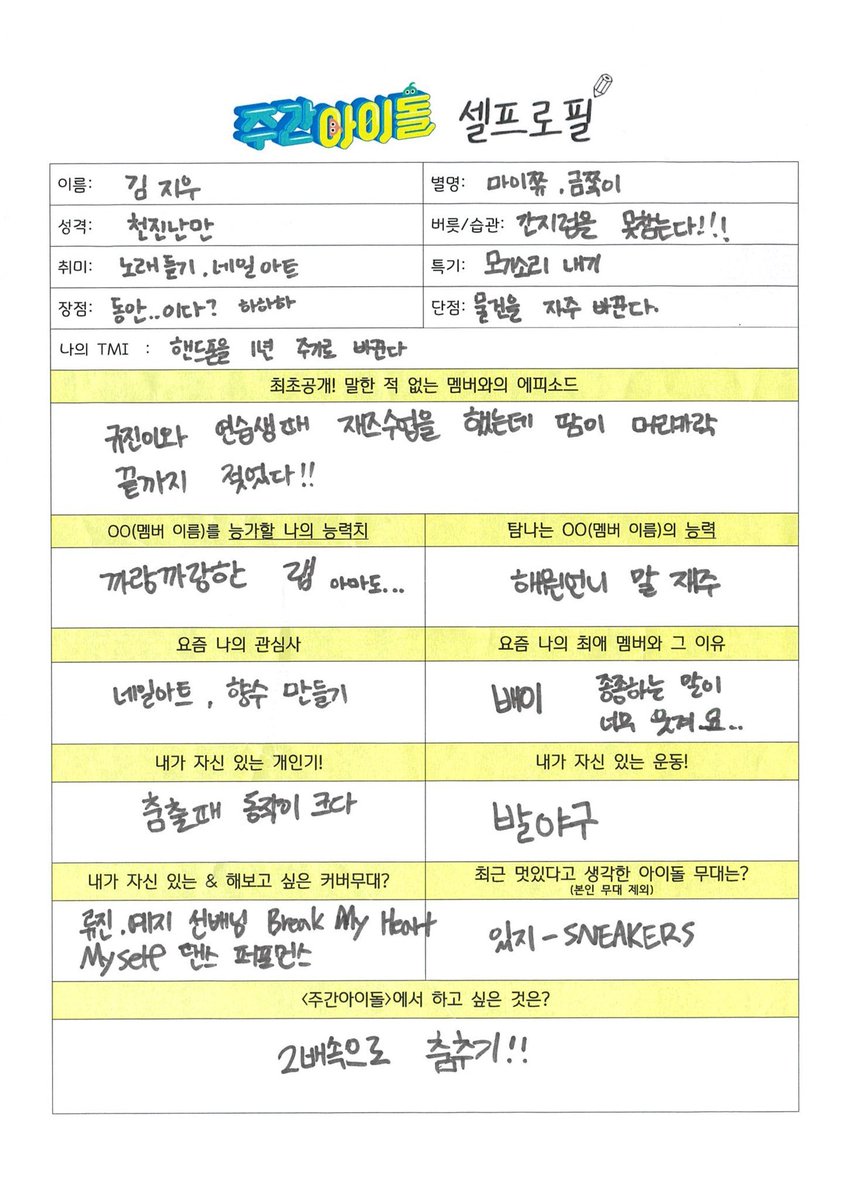 주간아이돌 셀프로필
이름: 김지우 별명: 마이쮸, 금쪽이
성격: 천진난만 버릇/습관: 간지럼을 못참는다!!!
취미: 노래 듣기, 네일아트 특기: 모기소리 내기
장점: 동안..이다? 하하하 단점: 물건을 자주 바꾼다.
나의 TMI : 핸드폰을 1년 주기로 바꾼다
최초공개! 말한 적 없는 멤버와의 에피소드
규진이와 연습생때 재즈수업을 했는데 땀이 머리카락
끝까지 젖었다!!
OO(멤버 이름)를 능가할 나의 능력치 탐나는 OO(멤버 이름)의 능력
까랑까랑한 랩 아마도... 해원언니 말 재주
요즘 나의 관심사 요즘 나의 최애 멤버와 그 이유
네일아트, 향수 만들기 배이 종종하는 말이
너무 웃겨요..
내가 자신 있는 개인기! 내가 자신 있는 운동!
춤출때 동작이 크다 발야구
내가 자신 있는 & 해보고 싶은 커버무대? 최근 멋있다고 생각한 아이돌 무대는?
(본인 무대 제외)
류진, 예지 선배님 Break My Heart
Myself 댄스 퍼포먼스 있지 - SNEAKERS
<주간아이돌>에서 하고 싶은 것은?
2배속으로 춤추기!!